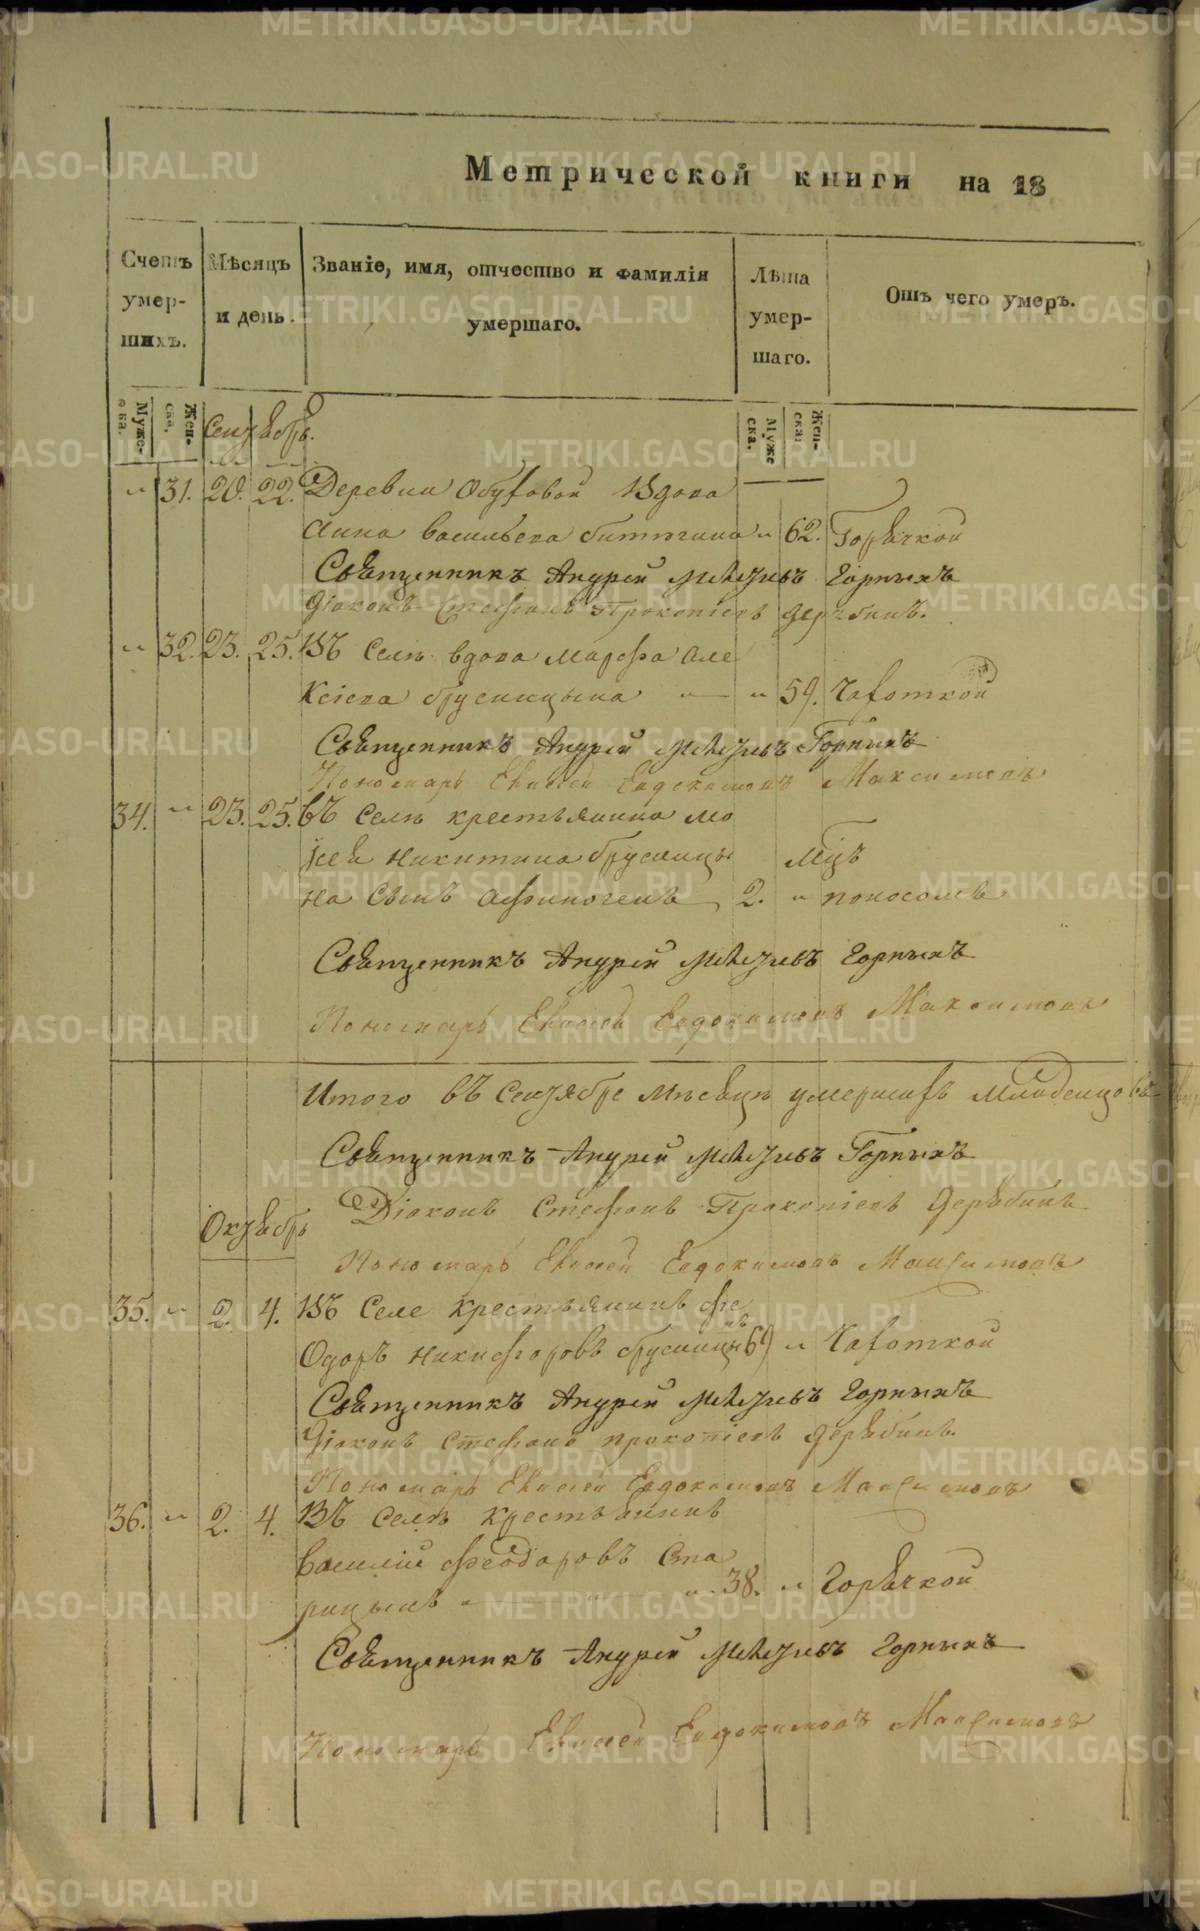 Метрической книги на 18
Счетъ умер- шихъ.
Мѣсяцъ и день.
Званіе, имя, отчество и фамилія умершаго.
Лѣта умер- шаго.
Отъ чего умеръ.
Муже- ска.
Жен- ска.
Муже ска.
Жен- ска.
Сентябрь.
" 31. 20. 22. Деревни Обуховой Вдова
Анна Васильева " 62. Горячкой
Священникъ Андрей Горныхъ
Діаконъ Стефанъ Прокопіевъ Дерябинъ.
" 32. 23. 25. Въ Селѣ вдова Марфа Але
ксіева Брусницына " 59. Чахоткой
Священникъ Андрей Горныхъ
Пономарь Евдокимовъ Максимовъ
34. " 23. 25. Въ Селѣ крестьянина Мо
Никитина Брусницы мцъ
на Сынъ Афиногенъ 2. " поносомъ
Священникъ Андрей Горныхъ
Пономарь Евдокимовъ Максимовъ
Итого въ Сентябре мѣсяцѣ умершихъ младенцовъ
Священникъ Андрей Горныхъ
Діаконъ Стефанъ Прокопіевъ Дерябинъ
Октябрь
Пономарь Евдокимовъ Максимовъ
35. " 2. 4. Въ Селе Крестьянинъ Фе
одоръ Никифоровъ Брусницынъ 69 " Чахоткой
Священникъ Андрей Горныхъ
Діаконъ Стефанъ Прокопіевъ Дерябинъ.
Пономарь Евдокимовъ Максимовъ
36. " 2. 4. Въ Селѣ Крестьянинъ
Василій Феодоровъ Ста
рицынъ " 38. " Горячкой
Священникъ Андрей Горныхъ
Пономарь Евдокимовъ Максимовъ
METRIKI.GASO-URAL.RU